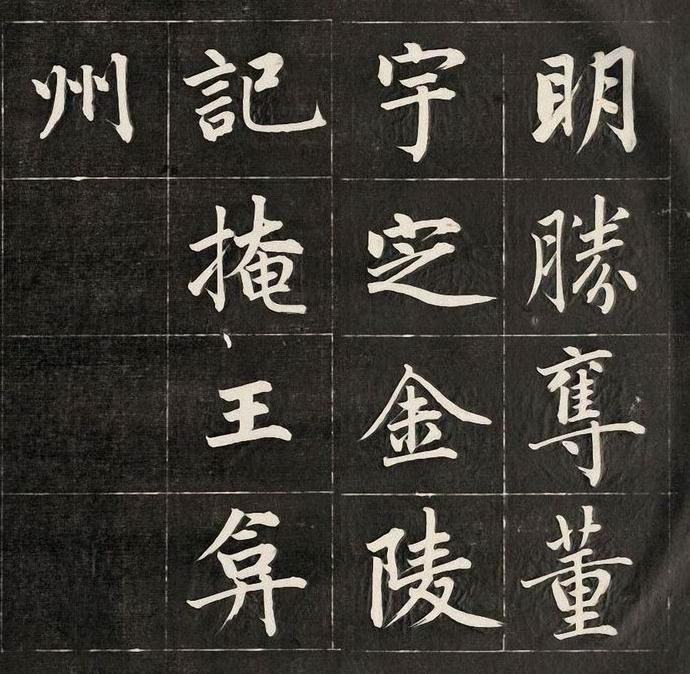 明勝奪董
宇定金陵
記掩王弇
州